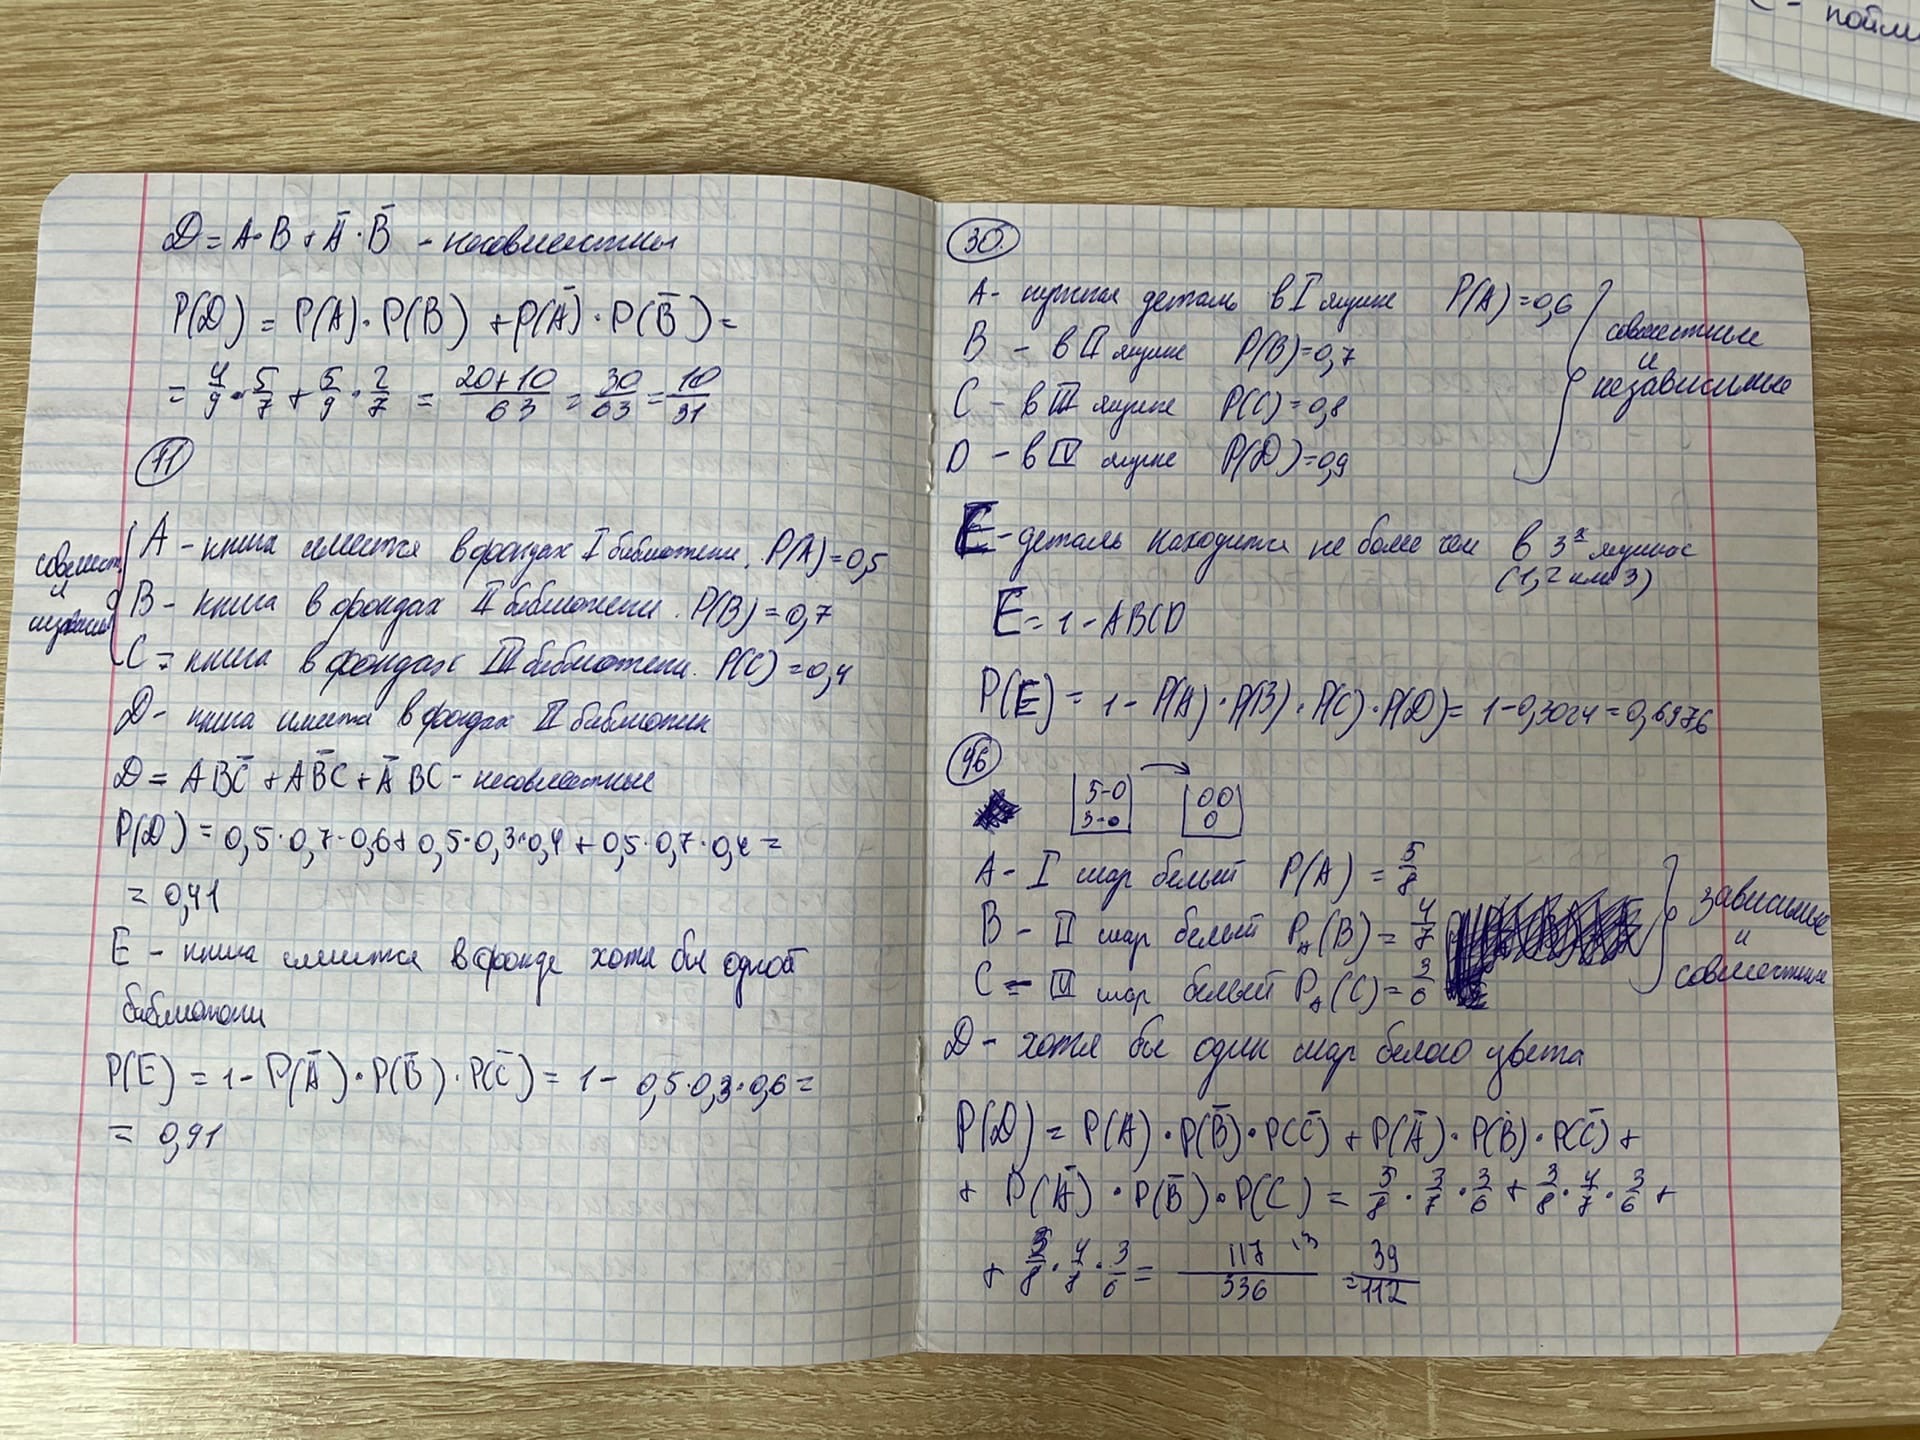 D = A·B + Ā·B̄ - несовместны
P(D) = P(A)·P(B) + P(Ā)·P(B̄) =
= 4/9 · 5/7 + 5/9 · 2/7 = 20+10/63 = 30/63 = 10/31
11
совмест. и независимы
A - книга имеется в фондах I библиотеки. P(A) = 0,5
B - книга в фондах II библиотеки. P(B) = 0,7
C = книга в фондах III библиотеки. P(C) = 0,4
D - книга имеется в фондах II библиотек
D = ABC̄ + AB̄C + ĀBC - несовместные
P(D) = 0,5·0,7·0,6 + 0,5·0,3·0,4 + 0,5·0,7·0,4 =
= 0,41
E - книга имеется в фонде хотя бы одной
библиотеки
P(E) = 1 - P(Ā)·P(B̄)·P(C̄) = 1 - 0,5·0,3·0,6 =
= 0,91
C - пойм
30.
A - нужная деталь в I ящике P(A) = 0,6
B - в II ящике P(B) = 0,7
C - в III ящике P(C) = 0,8
D - в IV ящике P(D) = 0,9
совместные
и
независимые
E - деталь находится не более чем в 3х ящиках
(1, 2 или 3)
E = 1 - ABCD
P(E) = 1 - P(A)·P(B)·P(C)·P(D) = 1 - 0,3024 = 0,6976
46
5-0 00
3-0 0
A - I шар белый P(A) = 5/8
B - II шар белый P_A(B) = 4/7
C = III шар белый P_A(C) = 3/6
зависимые
и
совместные
D - хотя бы один шар белого цвета
P(D) = P(A)·P(B̄)·P(C̄) + P(Ā)·P(B)·P(C̄) +
+ P(Ā)·P(B̄)·P(C) = 5/8 · 3/7 · 3/6 + 3/8 · 4/7 · 3/6 +
+ 3/8 · 4/7 · 3/6 = 117/336 = 39/112